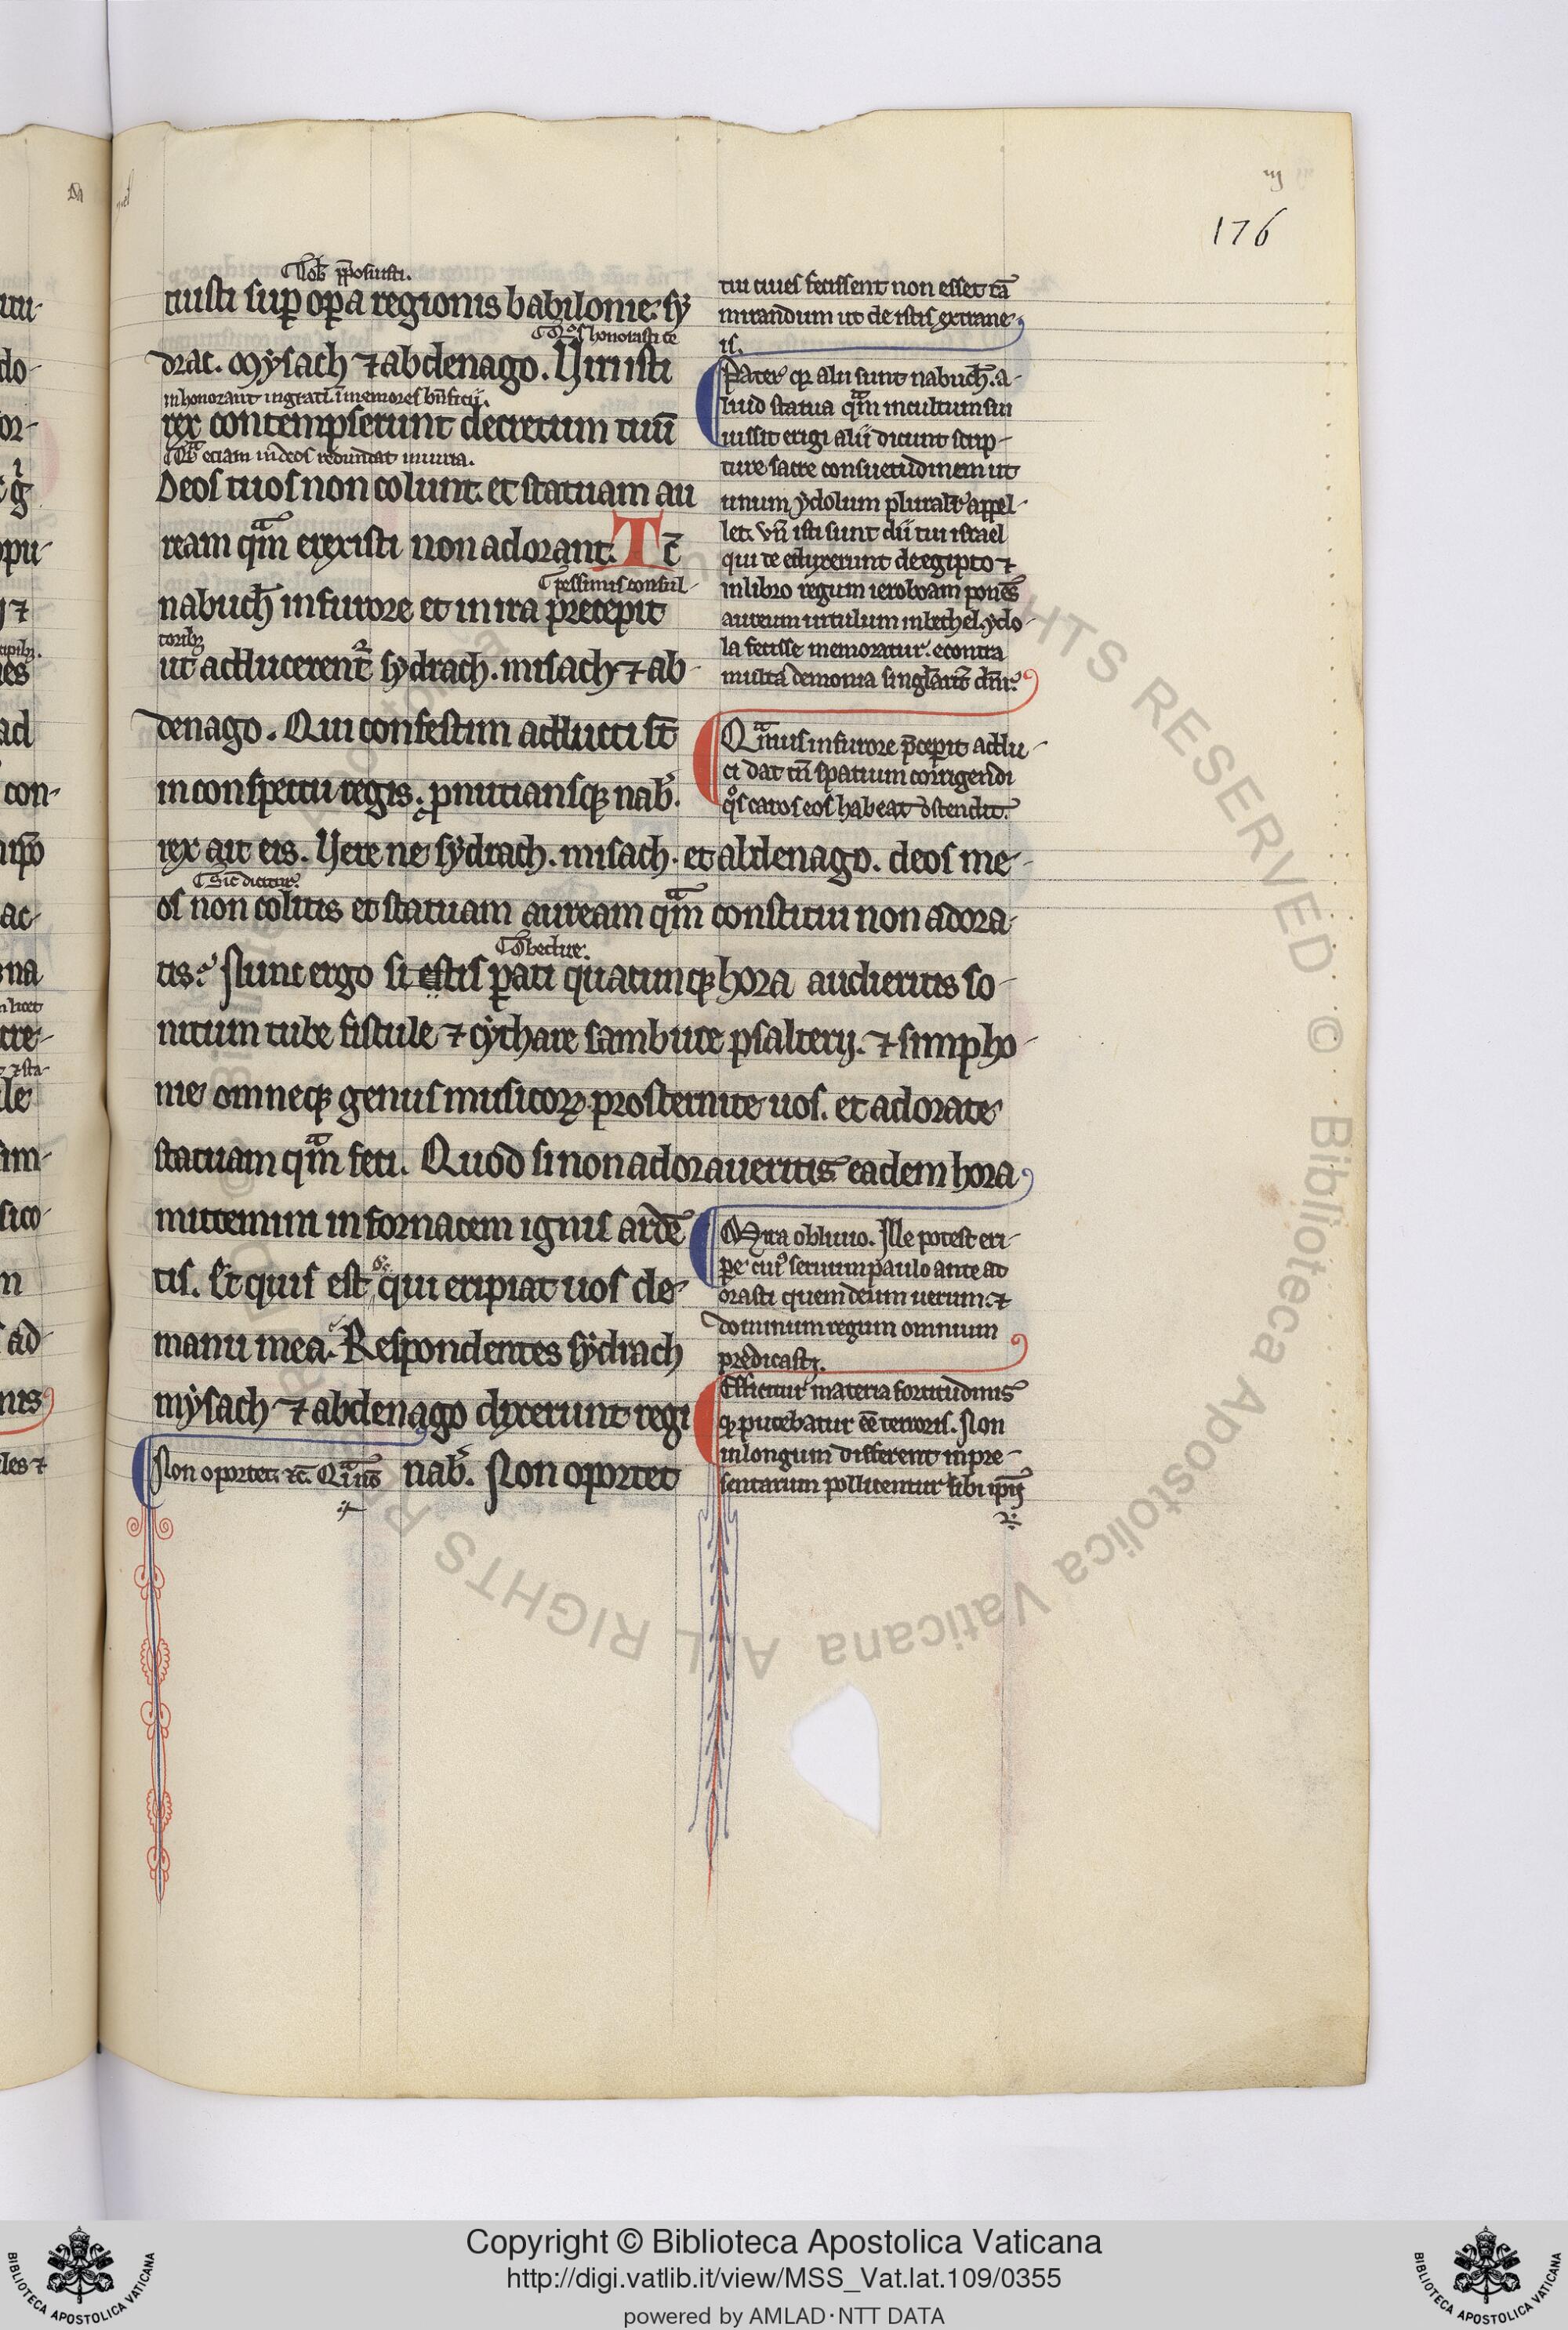 176
Nob̅ p̅posuisti.
tuisti sup̲ op̲a regionis babilonie. sy
Q°s honorasti te
drac. Mysach ⁊ abdenago. Viri isti
inhonorant ingrati. inmemores bn̅ficii.
rex contempserunt decretum tuu̅
etiam in deos redundat iniuria.
Deos tuos non colunt. et statuam au
ream qᵃm erexisti non adorant. Tc̅
pessimis consul-
nabuch̅ in furore et in ira precepit
toribꝫ
ut adducerent᷑ sydrach. misach ⁊ ab-
denago. Qui confestim adducti st̅
in conspectu regis. p̲nuntiansqꝫ nab᷑.
rex ait eis. Vere ne sydrach. misach. et abdenago. deos me-
Sic̅ dicitur.
os non colitis et statuam auream qᵃm constitui non adora-
tis? Nunc ergo si estis p̲ati quacunqꝫ hora audieritis so-
nitum tube fistule ⁊ cythare sambuce psalterij. ⁊ simpho-
nie omneqꝫ genus musicorꝝ prosternite uos. et adorate
statuam qᵃm feci. Quod si non adoraueritis eadem hora
mittemini in fornacem ignis arde̅
tis. Et quis est d̕s qui eripiat uos de
manu mea. Respondentes sydrach
mysach ⁊ abdenago dixerunt regi
nab᷑. Non oportet
Non oportet. ⁊c̅. Qᵃuis
tui ciues fecissent non esset ta̅
mirandum ut de istis extrane
is.
Pater qꝫ alii sunt nabuch̅. a-
liud statua qᵃm in cultum sui
iussit erigi alii dicunt scrip-
ture sacre consuetudinem ut
unum ydolum pluralit᷑ appel-
let. vn̅ isti sunt dii tui israel
qui te eduxerunt de egipto ⁊
in libro regum ieroboam ponens
aureum uitulum in bethel ydo-
la fecisse memoratur. econtra
multa demonia singlarit᷑ dn̅r.
Qᵃmuis in furore p̅cepit addu-
ci dat tn̅ spatium corrigendi
q°s caros eos habeat ostendit.
Mira obliuio. Ille potest eri-
pe᷑ cui᷒ seruum paulo ante ad
orasti quem deum uerum. ⁊
dominum regum omnium
predicasti.
Efficitur materia fortitudinis
qꝫ putabatur ee̅ terroris. Non
in longum different in pre-
sentarum pollicentur sibi ip̅i᷒
Copyright © Biblioteca Apostolica Vaticana
http://digi.vatlib.it/view/MSS_Vat.lat.109/0355
powered by AMLAD·NTT DATA